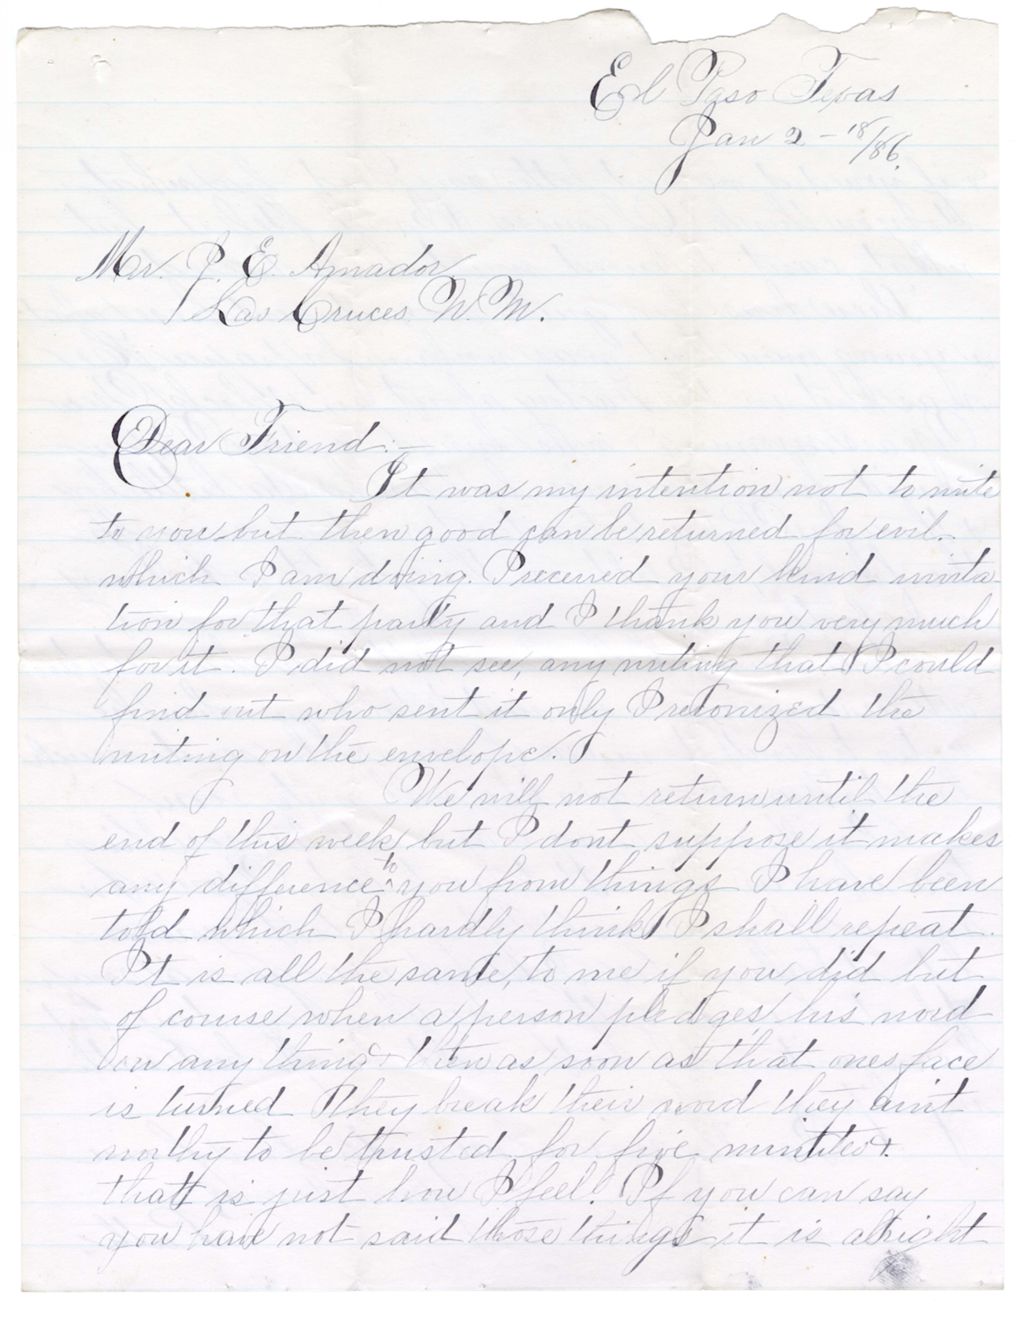 El Paso Texas
Jan 2 - 18/86.
Mr. J. E. Amador
Las Cruces N. M.
Dear Friend:—
It was my intention not to write
to you but then good can be returned for evil.
which I am doing. I received your kind invita
tion for that party and I thank you very much
for it. I did not see, any writing that I could
find out who sent it only I reconized the
writing on the envelope.
We will not return until the
end of this week, but I dont suppose it makes
any difference to you from things I have been
told which I hardly think I shall repeat.
It is all the same, to me if you did but
of course when a person pledges his word
on any thing & then as soon as that ones face
is turned they break their word they aint
worthy to be trusted for five minutes.
that is just how I feel. If you can say
you have not said those things it is alright